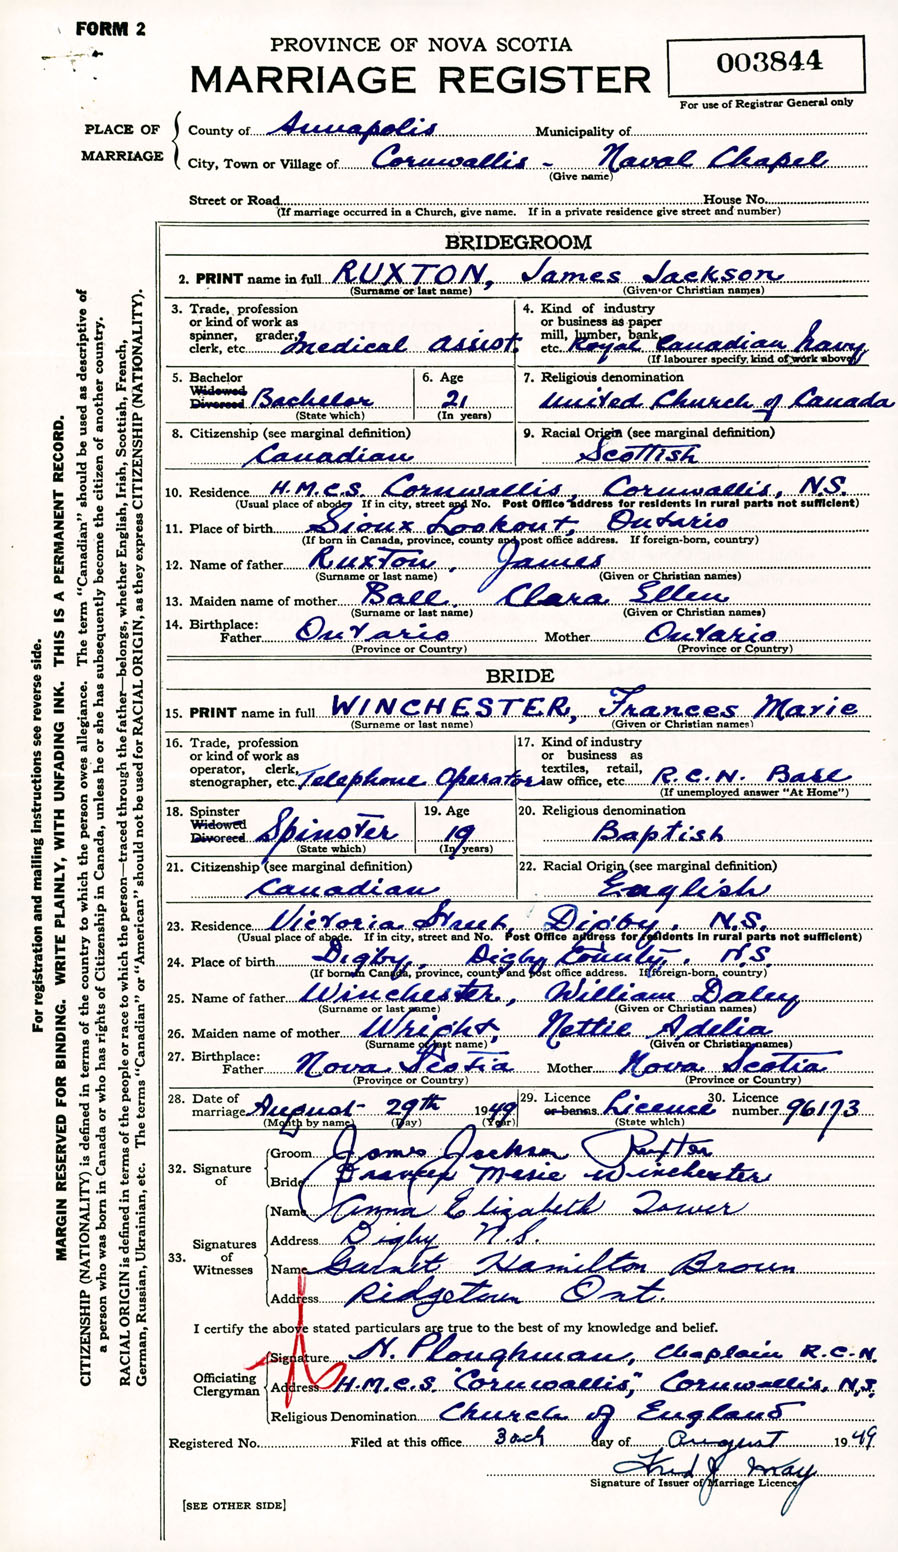 FORM 2
PROVINCE OF NOVA SCOTIA
MARRIAGE REGISTER
003844
For use of Registrar General only
PLACE OF MARRIAGE
County of Annapolis Municipality of
City, Town or Village of Cornwallis - Naval Chapel
(Give name)
Street or Road House No.
(If marriage occurred in a Church, give name. If in a private residence give street and number)
BRIDEGROOM
2. PRINT name in full RUXTON, James Jackson
(Surname or last name) (Given or Christian names)
3. Trade, profession or kind of work as spinner, grader, clerk, etc. Medical Assist.
4. Kind of industry or business as paper mill, lumber, bank, etc. Royal Canadian Navy
(If labourer specify, kind of work above)
5. Bachelor Widowed Divorced Bachelor
(State which)
6. Age 21
(In years)
7. Religious denomination
United Church of Canada
8. Citizenship (see marginal definition)
Canadian
9. Racial Origin (see marginal definition)
Scottish
10. Residence H.M.C.S. Cornwallis, Cornwallis, N.S.
(Usual place of abode. If in city, street and No. Post Office address for residents in rural parts not sufficient)
11. Place of birth Sioux Lookout, Ontario
(If born in Canada, province, county and post office address. If foreign-born, country)
12. Name of father Ruxton, James
(Surname or last name) (Given or Christian names)
13. Maiden name of mother Ball, Clara Ellen
(Surname or last name) (Given or Christian names)
14. Birthplace:
Father Ontario Mother Ontario
(Province or Country) (Province or Country)
BRIDE
15. PRINT name in full WINCHESTER, Frances Marie
(Surname or last name) (Given or Christian names)
16. Trade, profession or kind of work as operator, clerk, stenographer, etc. Telephone Operator
17. Kind of industry or business as textiles, retail, law office, etc. R.C.N. Base
(If unemployed answer "At Home")
18. Spinster Widowed Divorced Spinster
(State which)
19. Age 19
(In years)
20. Religious denomination
Baptish
21. Citizenship (see marginal definition)
Canadian
22. Racial Origin (see marginal definition)
English
23. Residence Victoria Street, Digby, N.S.
(Usual place of abode. If in city, street and No. Post Office address for residents in rural parts not sufficient)
24. Place of birth Digby, Digby County, N.S.
(If born in Canada, province, county and post office address. If foreign-born, country)
25. Name of father Winchester, William Daley
(Surname or last name) (Given or Christian names)
26. Maiden name of mother Wright, Nettie Adelia
(Surname or last name) (Given or Christian names)
27. Birthplace:
Father Nova Scotia Mother Nova Scotia
(Province or Country) (Province or Country)
28. Date of marriage August 29th 1949
(Month by name) (Day) (Year)
29. Licence or banns Licence
(State which)
30. Licence number 96173
32. Signature of
Groom James Jackson Ruxton
Bride Frances Marie Winchester
33. Signatures of Witnesses
Name Anna Elizabeth Tower
Address Digby N.S.
Name Garnet Hamilton Brown
Address Ridgetown Ont.
I certify the above stated particulars are true to the best of my knowledge and belief.
Officiating Clergyman
Signature H. Ploughman, Chaplain R.C.N.
Address H.M.C.S. "Cornwallis", Cornwallis, N.S.
Religious Denomination Church of England
Registered No. Filed at this office 30th day of August 1949
Fred J. May
Signature of Issuer of Marriage Licence
[SEE OTHER SIDE]
For registration and mailing instructions see reverse side.
MARGIN RESERVED FOR BINDING. WRITE PLAINLY, WITH UNFADING INK. THIS IS A PERMANENT RECORD.
CITIZENSHIP (NATIONALITY) is defined in terms of the country to which the person owes allegiance. The term "Canadian" should be used as descriptive of
a person who was born in Canada or who has rights of Citizenship in Canada, unless he or she has subsequently become the citizen of another country.
RACIAL ORIGIN is defined in terms of the people or race to which the person—traced through the father—belongs, whether English, Irish, Scottish, French,
German, Russian, Ukrainian, etc. The terms "Canadian" or "American" should not be used for RACIAL ORIGIN, as they express CITIZENSHIP (NATIONALITY).